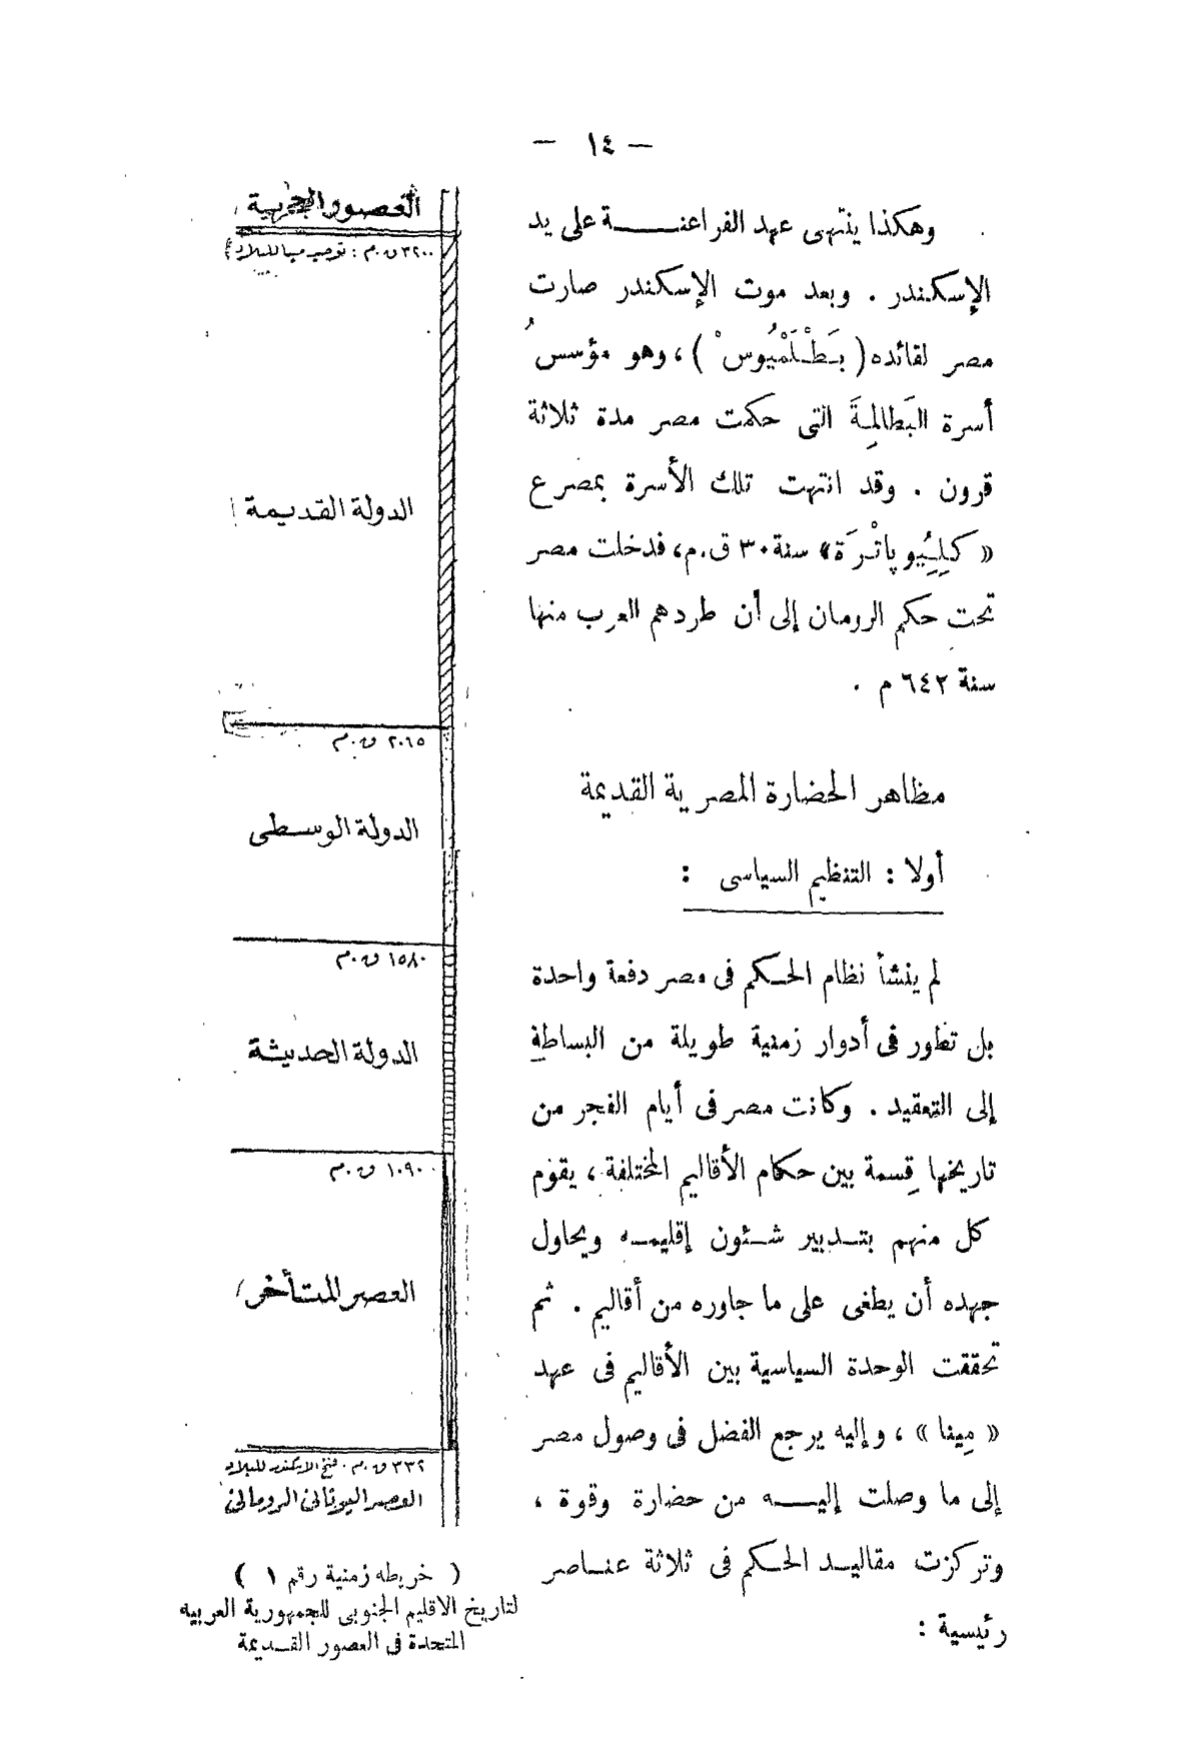 — ١٤ —
وهكذا ينتهى عهد الفراعنـــــة على يد
الإسكندر . وبعد موت الإسكندر صارت
مصر لقائده ( بَطْلَمْيُوسْ ) ، وهو مؤسسُ
أسرة البَطالِمةَ التى حكمت مصر مدة ثلاثة
قرون . وقد انتهت تلك الأسرة بمصرع
« كِلِيُوپاتْرَة » سنة ٣٠ ق.م، فدخلت مصر
تحت حكم الرومان إلى أن طردهم العرب منها
سنة ٦٤٢ م .
مظاهر الحضارة المصرية القديمة
أولا : التنظيم السياسى :
لم ينشأ نظام الحكم فى مصر دفعة واحدة
بل تطور فى أدوار زمنية طويلة من البساطة
إلى التعقيد . وكانت مصر فى أيام الفجر من
تاريخها قِسمة بين حكام الأقاليم المختلفة ، يقوم
كل منهم بتـدبير شـئون إقليمـه ويحاول
جهده أن يطغى على ما جاوره من أقاليم . ثم
تحققت الوحدة السياسية بين الأقاليم فى عهد
« مِينا » ، وإليه يرجع الفضل فى وصول مصر
إلى ما وصلت إليــــه من حضارة وقوة ،
وتركزت مقاليـد الحـكم فى ثلاثة عنـاصر
رئيسية :
العصور الحجرية
٣٢٠٠ ق.م : توحيد مينا للبلاد
الدولة القديمة
٢٠٦٥ ق.م
الدولة الوسطى
١٥٨٠ ق.م
الدولة الحديثة
١٠٩٠ ق.م
العصر المتأخر
٣٣٢ ق.م . فتح الاسكندر للبلاد
العصر اليونانى الرومانى
( خريطه زمنية رقم ١ )
لتاريخ الاقليم الجنوبى للجمهورية العربيه
المتحدة فى العصور القـديمة